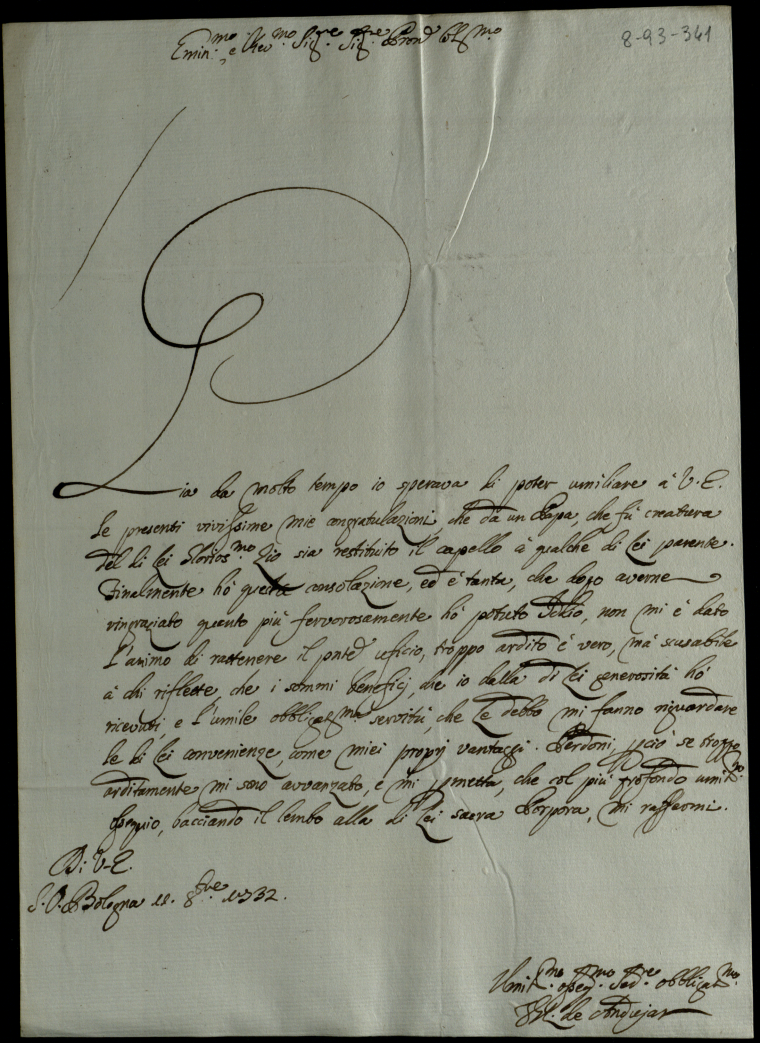 Emin.mo e Rev.mo Sig.re Sig.re Pron Col.mo
8-93-341
Già da molto tempo io sperava di poter umiliare à V. E.
le presenti vivissime mie congratulazioni che da un Papa, che fù creatura
del di Lei Glorios.mo Zio sia restituito il capello à qualche di Lei parente.
Finalmente hò questa consolazione, ed è tanta, che dopo averne
ringraziato quanto più fervorosamente hò potuto Iddio, non mi è dato
l'animo di rattenere il pnte ufficio, troppo ardito è vero, mà scusabile
à chi riflette, che i sommi beneficj, che io dalla di Lei generosità hò
ricevuti, e l'umile obbligat.ma servitù, che Le debbo mi fanno riguardare
le di Lei convenienze, come miei proprj vantaggi. Perdoni, pciò se troppo
arditamente mi sono avvanzato, e mi pmetta, che col più profondo umil.mo
ossequio, bacciando il lembo alla di Lei sacra Porpora, mi raffermi.
Di V. E.
S. P. Bologna 11. 8bre 1732.
Umil.mo Osseq.mo Ser.re obbligat.mo
de Andujar